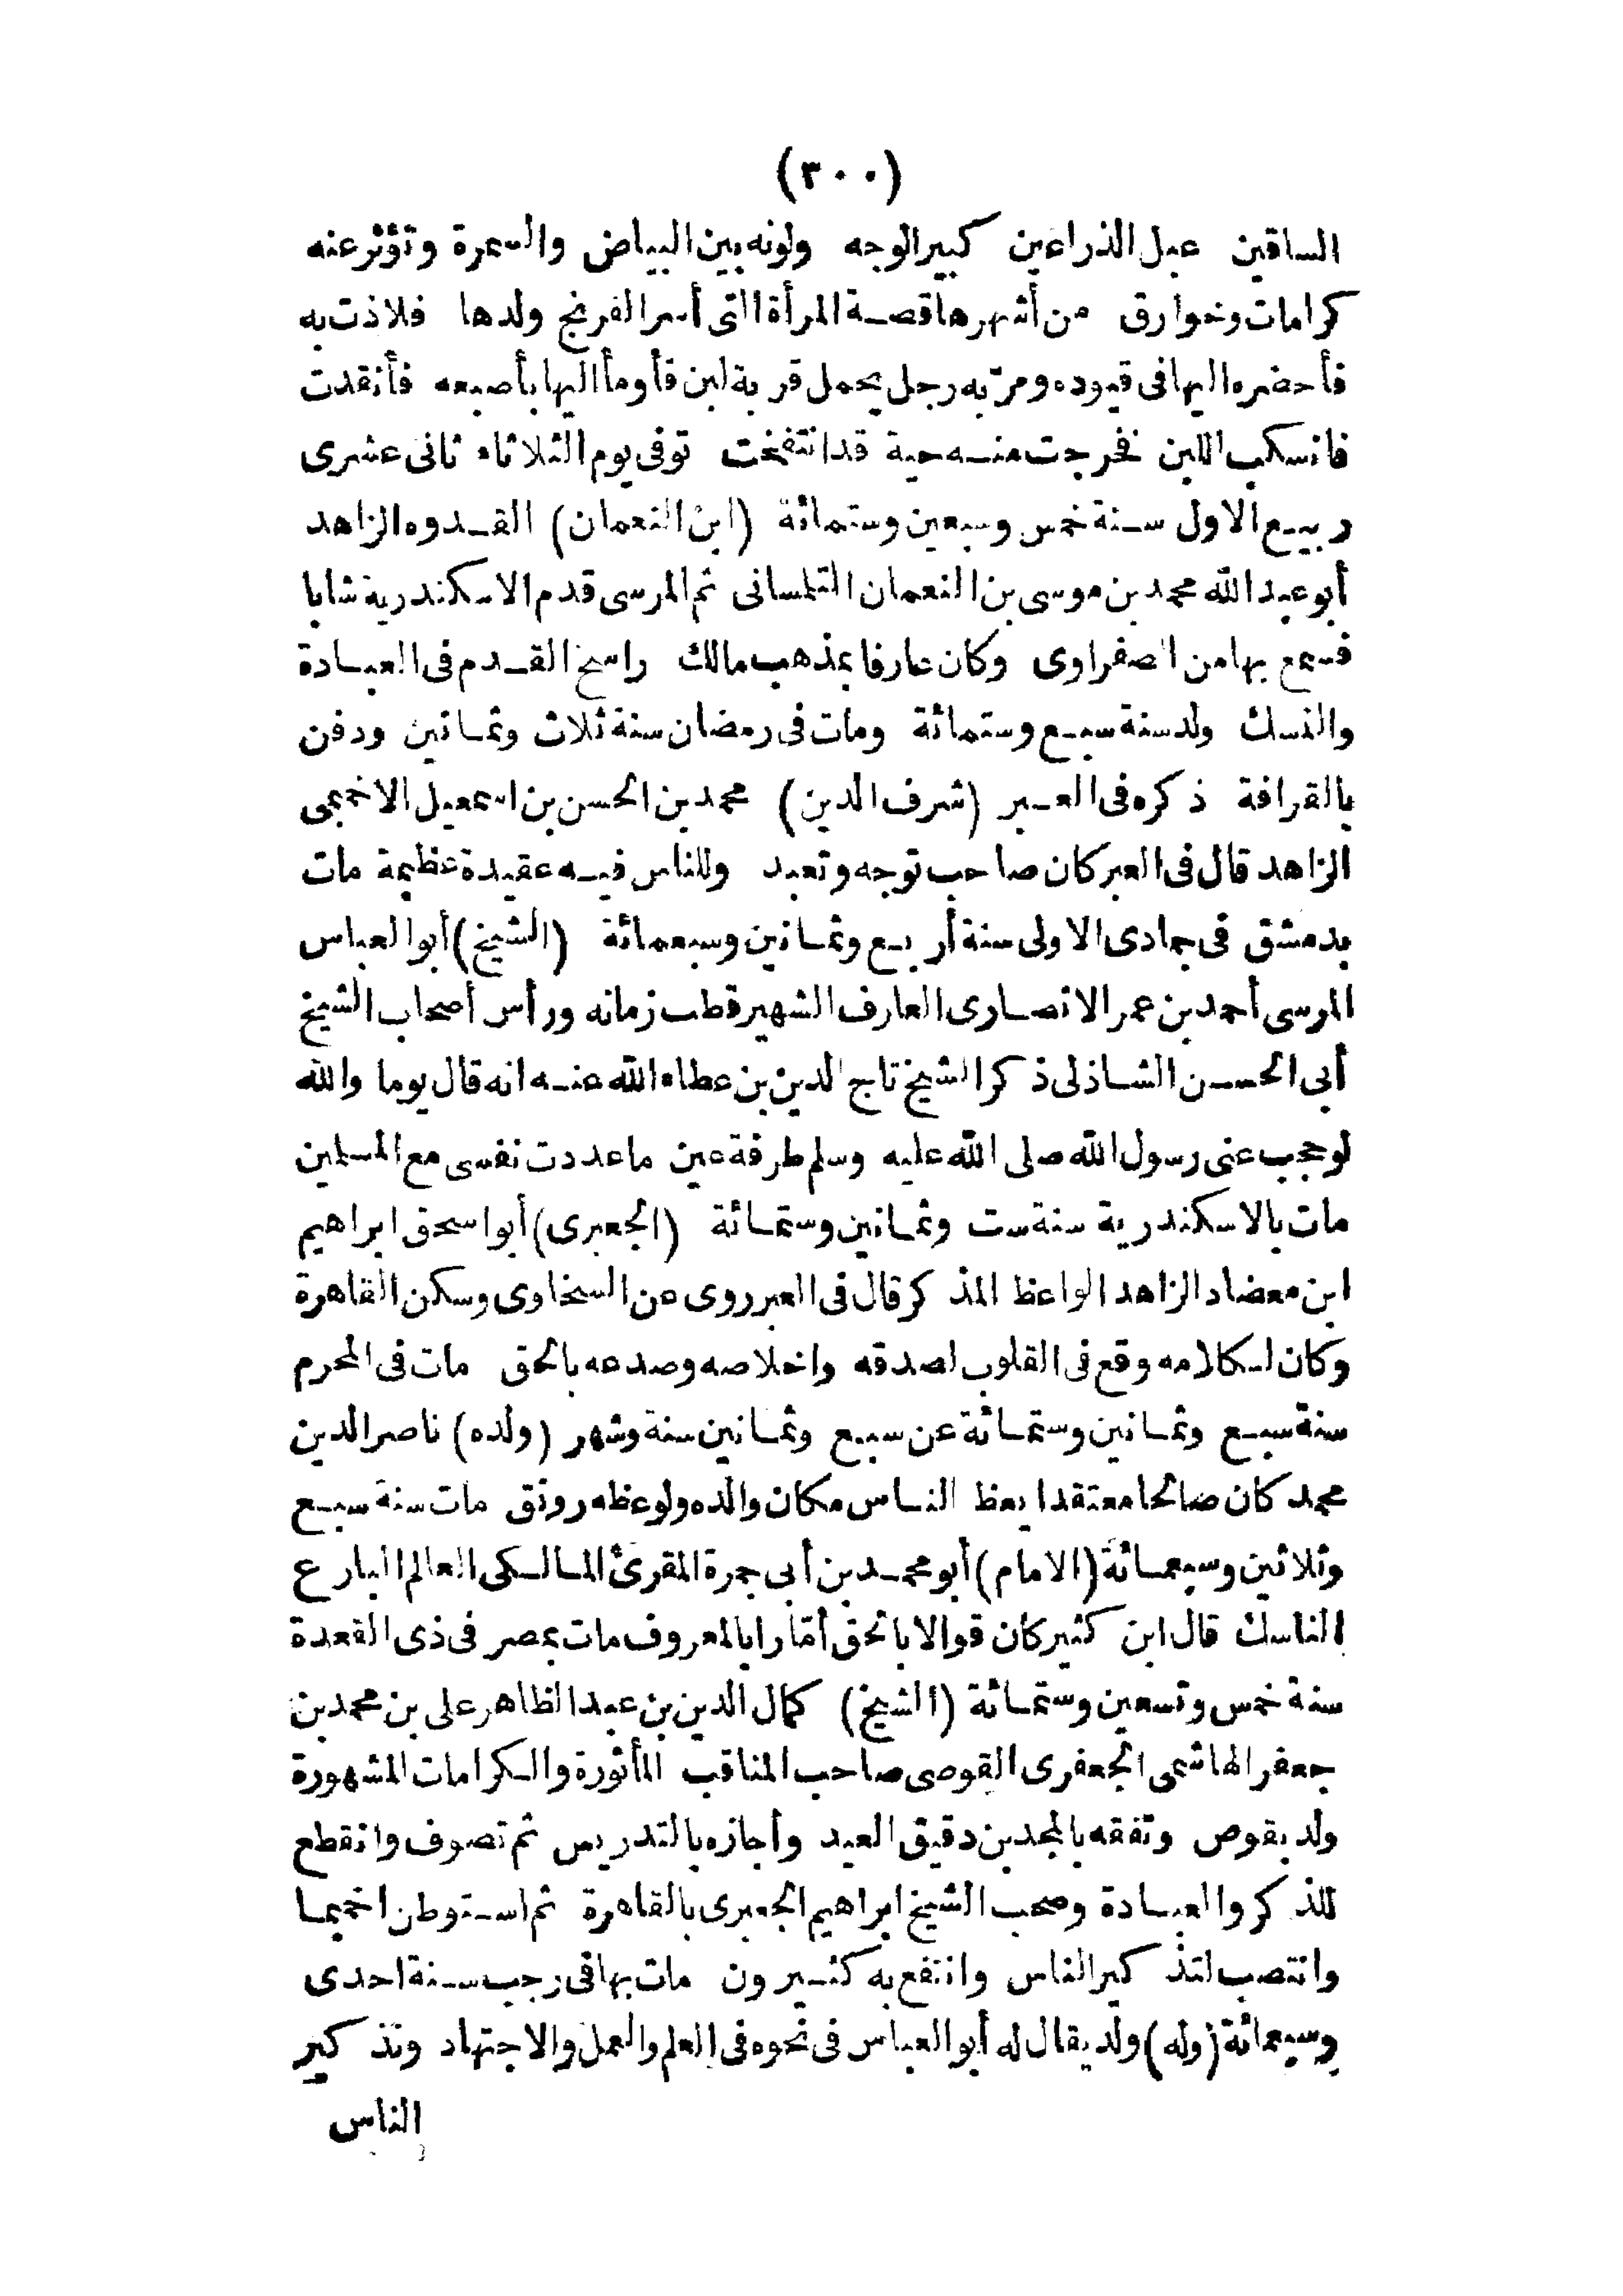 (٣٠٠)
الساقين عبل الذراعين كبير الوجه ولونه بين البياض والسمرة وتؤثر عنه
كرامات وخوارق من أشهرها قصة المرأة التى أسر الفرنج ولدها فلاذت به
فأحضره اليها فى قيوده ومرّ به رجل يحمل قربة لبن فأومأ اليها بأصبعه فأنقدت
فانسكب اللبن فخرجت منه حية قد انتفخت توفى يوم الثلاثاء ثانى عشرى
ربيع الاول سنة خمس وسبعين وستمائة (ابن النعمان) القدوه الزاهد
أبو عبد الله محمد بن موسى بن النعمان التلمسانى ثم المرسى قدم الاسكندرية شابا
فسمع بها من الصفراوى وكان عارفا بمذهب مالك راسخ القدم فى العبادة
والنسك ولد سنة سبع وستمائة ومات فى رمضان سنة ثلاث وثمانين ودفن
بالقرافة ذكره فى العبر (شرف الدين) محمد بن الحسن بن اسمعيل الاخميمى
الزاهد قال فى العبر كان صاحب توجه وتعبد وللناس فيه عقيدة عظيمة مات
بدمشق فى جمادى الاولى سنة أربع وثمانين وسبعمائة (الشيخ) أبو العباس
المرسى أحمد بن عمر الانصارى العارف الشهير قطب زمانه ورأس أصحاب الشيخ
أبى الحسن الشاذلى ذكر الشيخ تاج الدين بن عطاء الله عنه انه قال يوما والله
لو حجب عنى رسول الله صلى الله عليه وسلم طرفة عين ما عددت نفسى مع المسلمين
مات بالاسكندرية سنة ست وثمانين وستمائة (الجعبرى) أبو اسحق ابراهيم
ابن معضاد الزاهد الواعظ المذكر قال فى العبر روى عن السخاوى وسكن القاهرة
وكان لكلامه وقع فى القلوب لصدقه واخلاصه وصدعه بالحق مات فى المحرم
سنة سبع وثمانين وستمائة عن سبع وثمانين سنة وشهر (ولده) ناصر الدين
محمد كان صالحا معتقدا يعظ الناس مكان والده ولوعظه رونق مات سنة سبع
وثلاثين وسبعمائة (الامام) أبو محمد بن أبى جمرة المقرئ المالكى العالم البارع
الناسك قال ابن كثير كان قوالا بالحق أمّارا بالمعروف مات بمصر فى ذى القعدة
سنة خمس وتسعين وستمائة (الشيخ) كمال الدين بن عبد الظاهر على بن محمد بن
جعفر الهاشمى الجعفرى القوصى صاحب المناقب المأثورة والكرامات المشهورة
ولد بقوص وتفقه بالمجد بن دقيق العيد وأجازه بالتدريس ثم تصوف وانقطع
للذكر والعبادة وصحب الشيخ ابراهيم الجعبرى بالقاهرة ثم استوطن اخميما
وانتصب لتذكير الناس وانتفع به كثيرون مات بها فى رجب سنة احدى
وسبعمائة (وله) ولد يقال له أبو العباس فى نحوه فى العلم والعمل والاجتهاد وتذكير
الناس